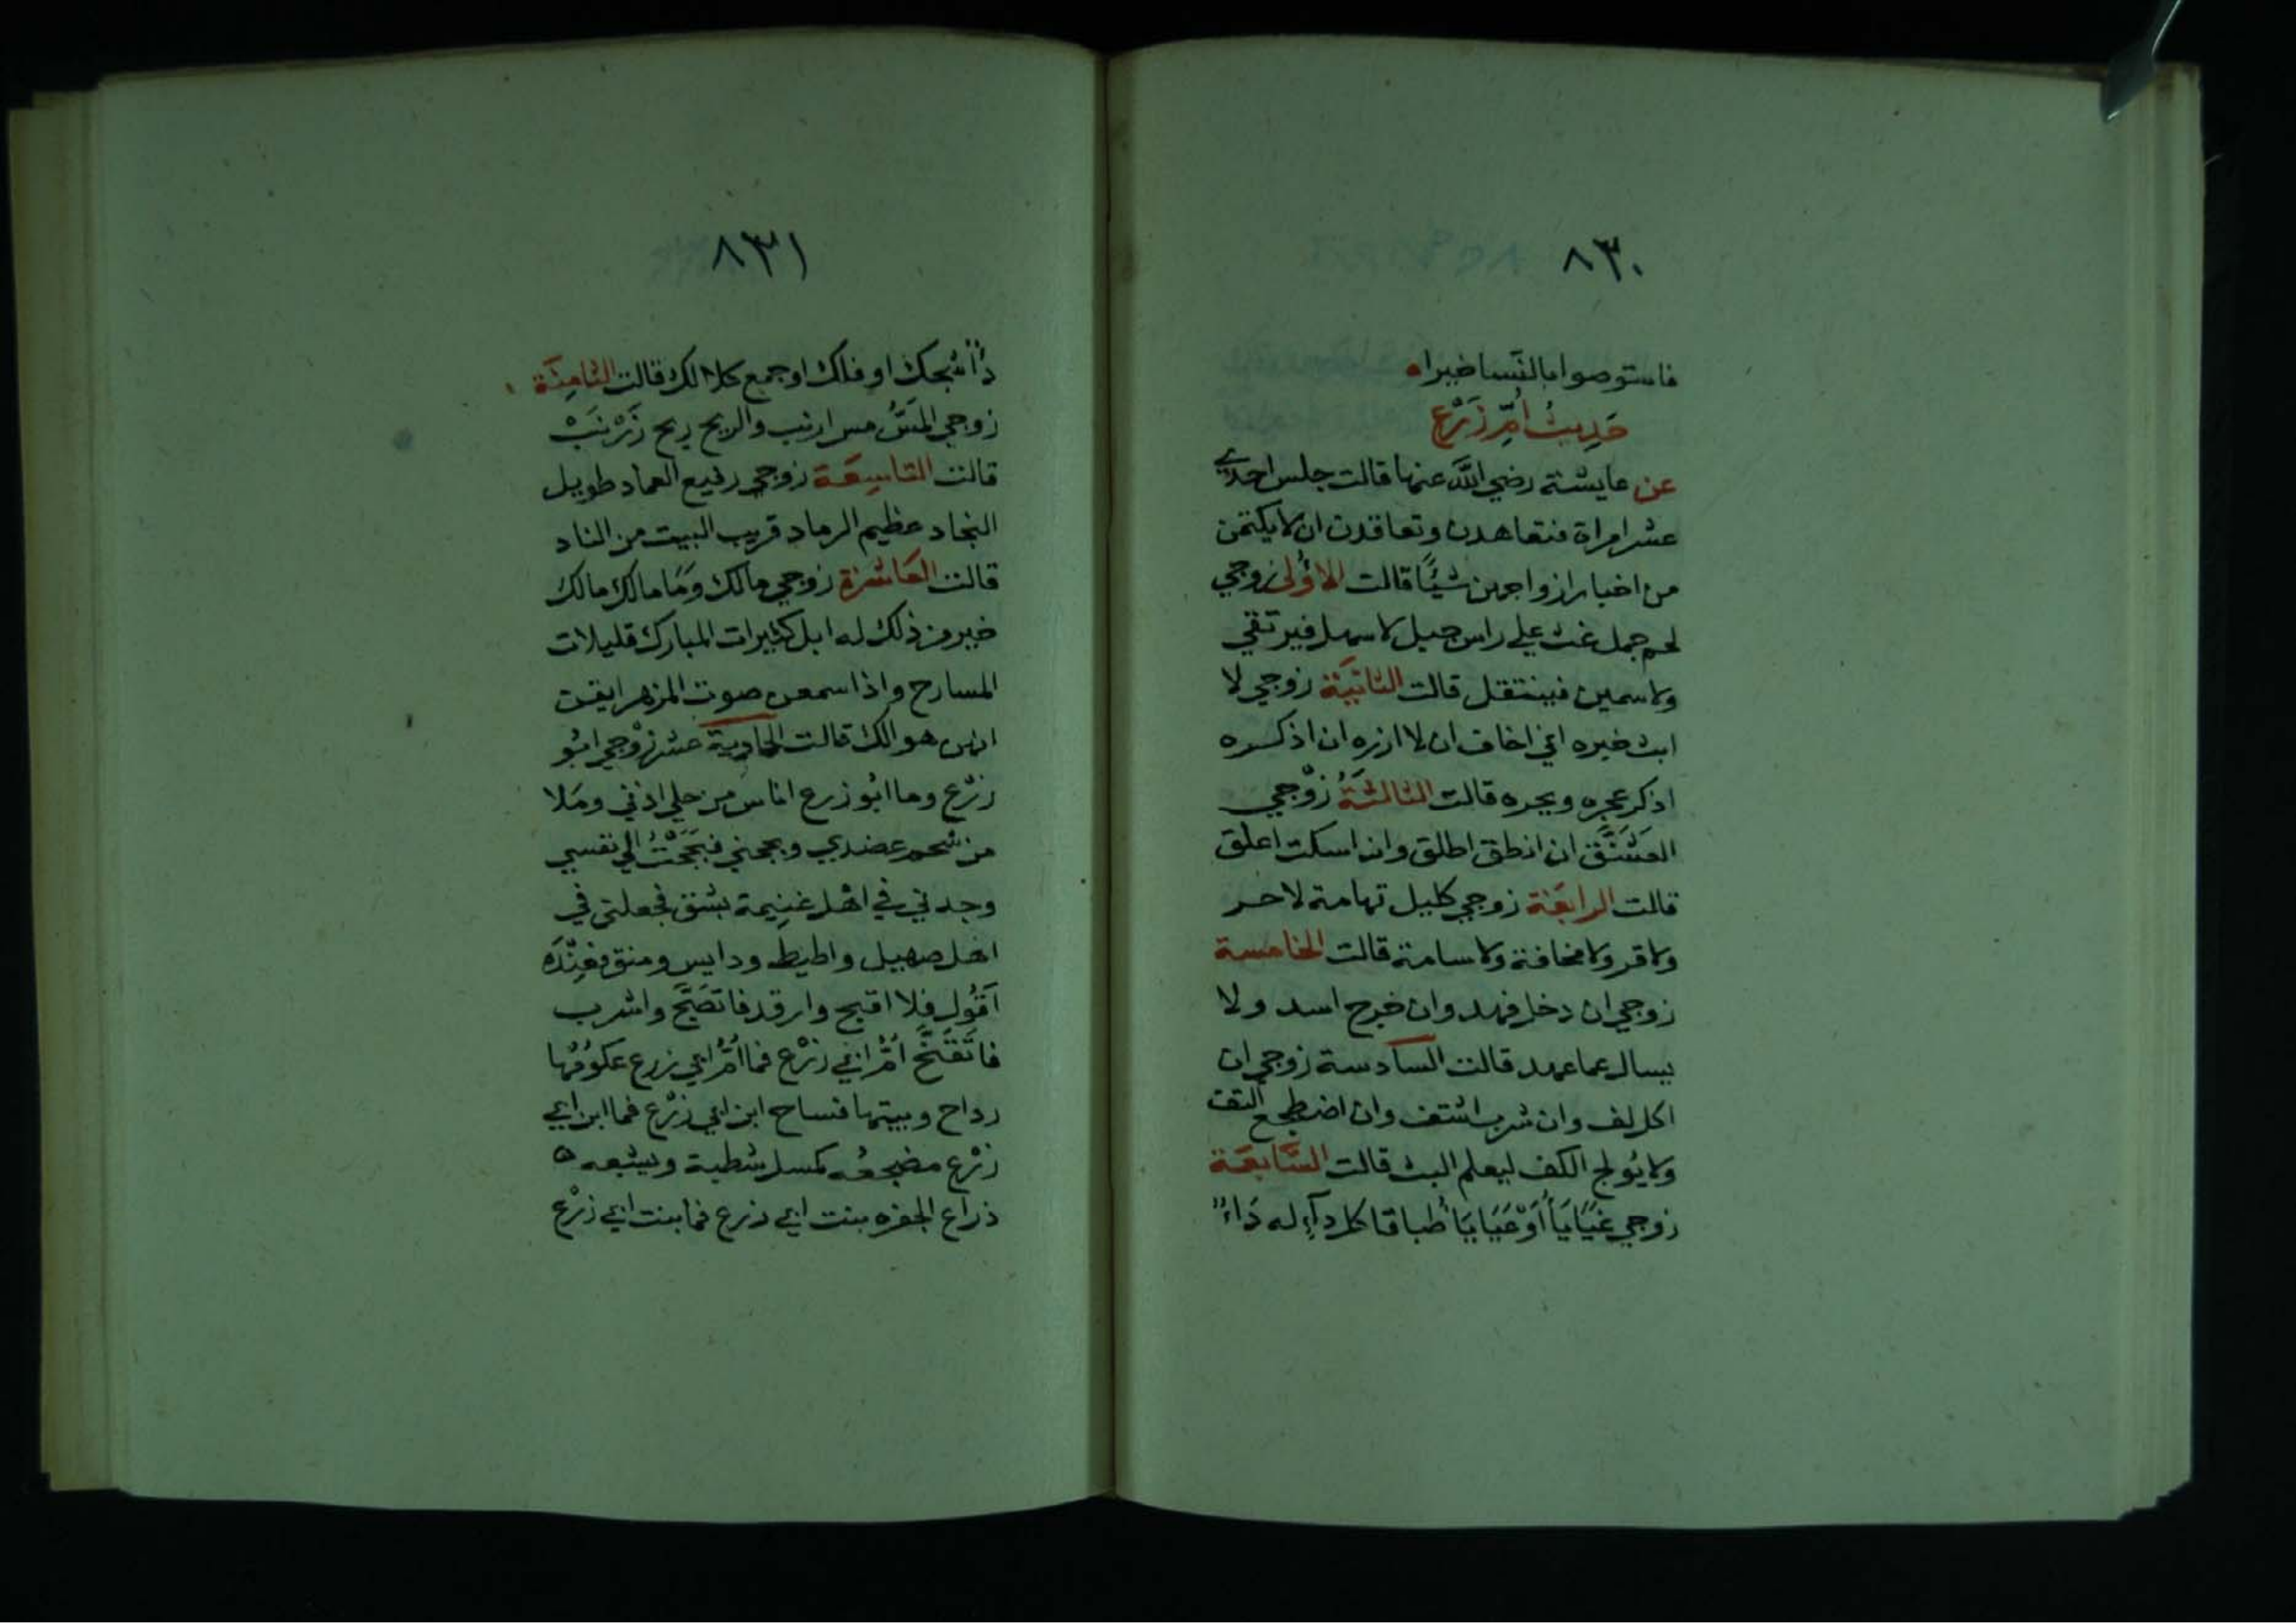 ٨٣٠
فاستوصوا بالنسا خيرا ه
حَدِيثُ أُمِّ زَرْعٍ
عن عايشة رضي الله عنها قالت جلس احدي
عشر امراة فتعاهدن وتعاقدن ان لا يكتمن
من اخبار ازواجهن شيًا قالت الاُولى زوجي
لحم جمل غث علي راس جبل لا سهل فيرتقي
ولا سمين فينتقل قالت الثانِيَة زوجي لا
ابث خبره اني اخاف ان لا اذره ان اذكره
اذكر عجره وبجره قالت الثالثَةُ زوْجي
العَشَنَّق ان انطق اطلق وان اسكت اعلق
قالت الرابعَة زوجي كليل تهامة لا حر
ولا قر ولا مخافة ولا سامة قالت الخامسة
زوجي ان دخل فهد وان خرج اسد ولا
يسال عما عهد قالت السادسة زوجي ان
اكل لف وان شرب اشتف وان اضطجع التف
ولا يُولج الكف ليعلم البث قالت السَّابعَة
زوجي غَيَايَاُ أَوْ عَيَايَا طباقا كل دآءٍ له دَاءٌ
٨٣١
شجك او فلك او جمع كلا لك قالت الثامِنَة
زوجي المَسُّ مس ارنب والريح ريح زَرْنَبْ
قالت التاسِعَة زوجي رفيع العماد طويل
النجاد عظيم الرماد قريب البيت من الناد
قالت العَاشرَة زوجي مالك وَمَا مالك مالك
خير من ذلك له ابل كثيرات المبارك قليلات
المسارح واذا سمعن صوت المزهر ايقن
انهن هوالك قالت الحادية عشر زوْجي ابُو
زرْع وما ابُو زرع اناس من حلي اذني ومَلا
من شحم عضدي وبجحني فبَجَحْتُ الي نفسي
وجدني في اهْل غنِيمة بشق فجعلني في
اهل صهيل واطيط ودايس ومنق فعِنْدَه
اَقُول فلا اقبح وارقد فاتصَبَّح واشرب
فاتَقَنَّح اُمُّ ابي زرْع فما اُمُّ ابي زرع عكوُمُها
رداح وبيتها فساح ابن ابي زرْع فما ابن ابي
زرْع مضجعُه كمسل شطبة ويشبعه ه
ذراع الجفره بنت ابي زرع فما بنت ابي زرْع